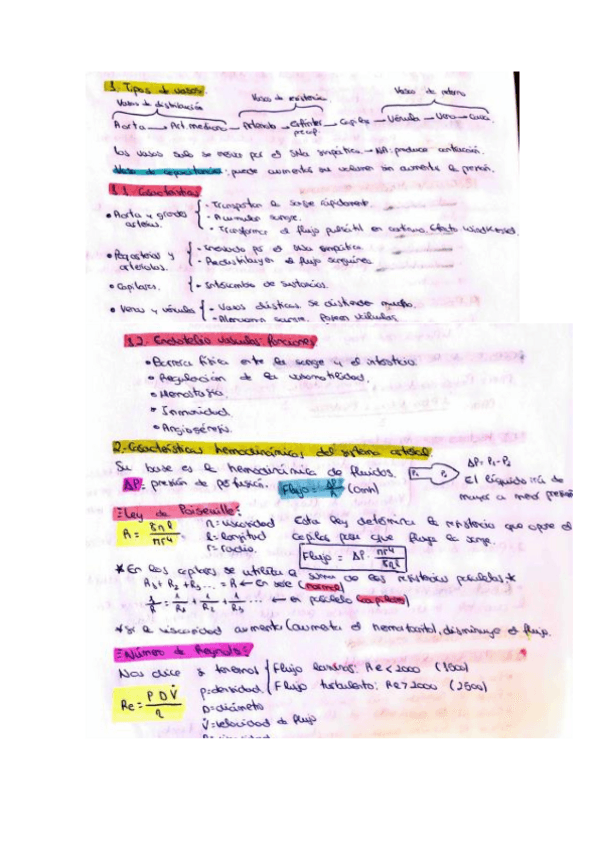 1. Tipos de vasos.
Vasos de distribución Vasos de resistencia Vasos de retorno
Aorta → Art. mediana → Arteriola → Esfínter precap. → Capilar → Vénula → Vena → Cava.
Los vasos solo se inervan por el SNA simpático → NA: produce contracción.
Vasos de capacitancia: puede aumentar su volumen sin aumentar la presión.
1.1. Características
• Aorta y grandes arterias.
- Transportan la sangre rápidamente.
- Acumulan sangre.
- Transforma el flujo pulsátil en continuo. Efecto Windkessel
• Peq arterias y arteriolas.
- Inervado por el SNA simpático
- Redistribuyen el flujo sanguíneo
• Capilares. - Intercambio de sustancias.
• Venas y vénulas - Vasos elásticos. Se distienden mucho.
- Almacenan sangre. Poseen válvulas.
1.2.- Endotelio vascular: funciones
• Barrera física entre la sangre y el intersticio
• Regulación de la vasomotilidad.
• Hemostasia.
• Inmunidad
• Angiogénesis.
2.- Características hemodinámicas del sistema arterial.
Su base es la hemodinámica de fluidos. P₁ P₂ ΔP = P₁ - P₂
ΔP = presión de perfusión. Flujo = ΔP/R (Ohm) El líquido irá de mayor a menor presión
Ley de Poiseuille:
R = 8ηl / πr⁴
η = viscosidad
l = longitud
r = radio.
Esta ley determina la resistencia que opone el
capilar para que fluya la sangre.
Flujo = ΔP · πr⁴ / 8ηl
* En los capilares se utiliza la suma de las resistencias paralelas. *
R₁ + R₂ + R₃ ... = R ← En serie (normal)
1/R = 1/R₁ + 1/R₂ + 1/R₃ ... ← en paralelo (capilares)
* Si la viscosidad aumenta (aumenta el hematocrito), disminuye el flujo.
Número de Reynolds:
Nos dice si tenemos
Flujo laminar: Re < 2000 (1500)
Flujo turbulento: Re > 2000 (2500)
Re = P D V̇ / η
ρ = densidad.
D = diámetro
V̇ = velocidad de flujo